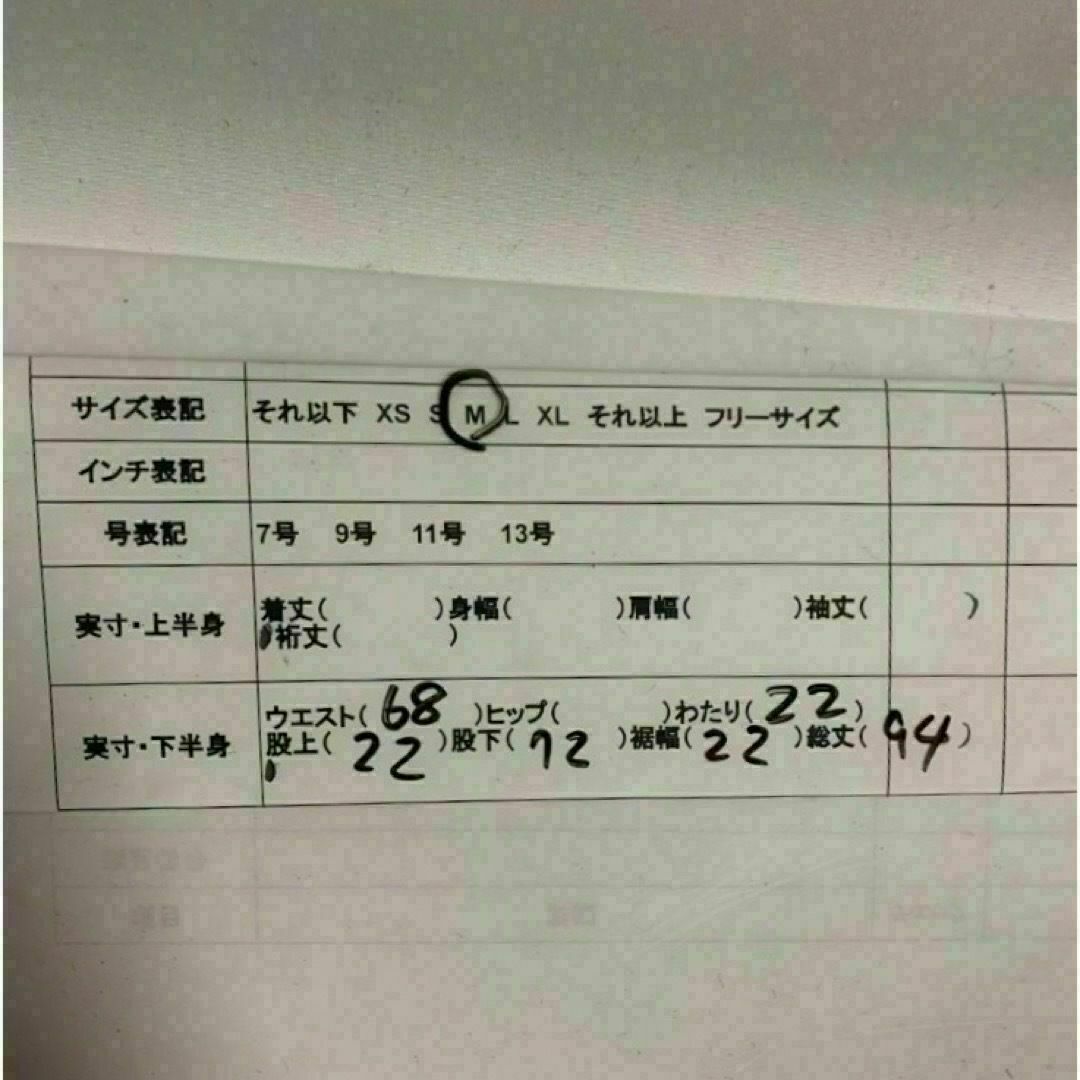 サイズ表記 それ以下 XS S M L XL それ以上 フリーサイズ
インチ表記
号表記 7号 9号 11号 13号
実寸・上半身 着丈( )身幅( )肩幅( )袖丈( )
裄丈( )
実寸・下半身 ウエスト( 68 )ヒップ( )わたり( 22 )
股上( 22 )股下( 72 )裾幅( 22 )総丈( 94 )